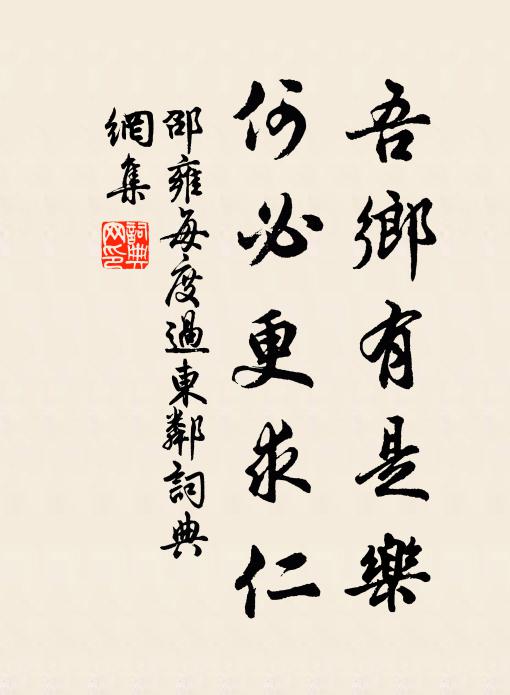 吾鄉有是樂
何必更求仁
邵雍每度過東鄰詞典
網集
詞典网印